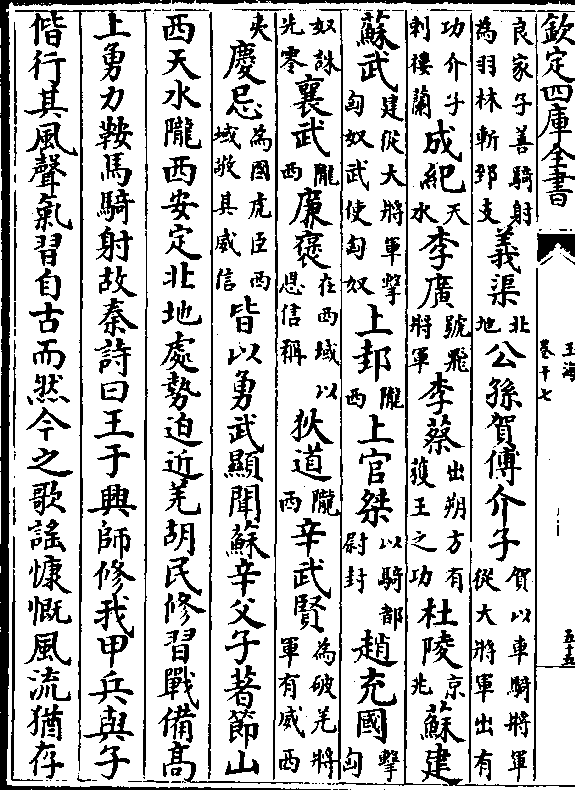 欽定四庫全書 玉海 卷十七 五十五
良家子善騎射為羽林斬郅支義渠北地公孫賀傅介子賀以車騎將軍從大將軍出有
功介子刺樓蘭成紀天水李廣號飛將軍李蔡出朔方有獲王之功杜陵京兆蘇建
蘇武建從大將軍擊匈奴武使匈奴上邽隴西上官桀以騎都尉封趙充國擊匈
奴誅先零襄武隴西廉褒在西域以恩信稱狄道隴西辛武賢為破羌將軍有威西
夷慶忌為國虎臣西域敬其威信皆以勇武顯聞蘇辛父子著節山
西天水隴西安定北地處勢迫近羌胡民修習戰備高
上勇力鞍馬騎射故秦詩曰王于興師修我甲兵與子
偕行其風聲氣習自古而然今之歌謠慷慨風流猶存